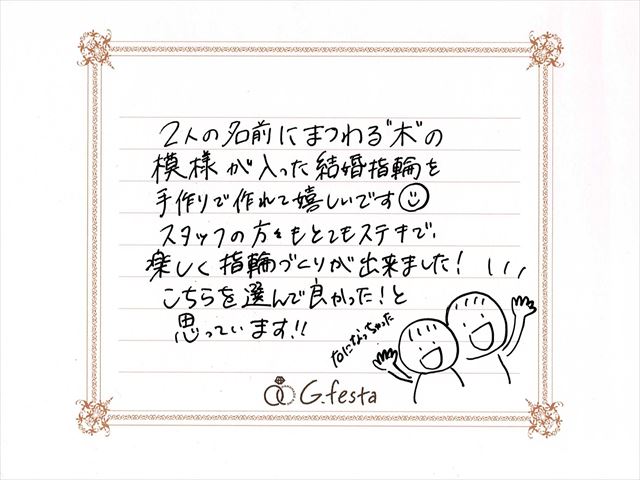 2人の名前にまつわる"木"の
模様が入った結婚指輪を
手作りで作れて嬉しいです
スタッフの方々もとてもステキで、
楽しく指輪づくりが出来ました!
こちらを選んで良かった!と
思っています!!
G.festa